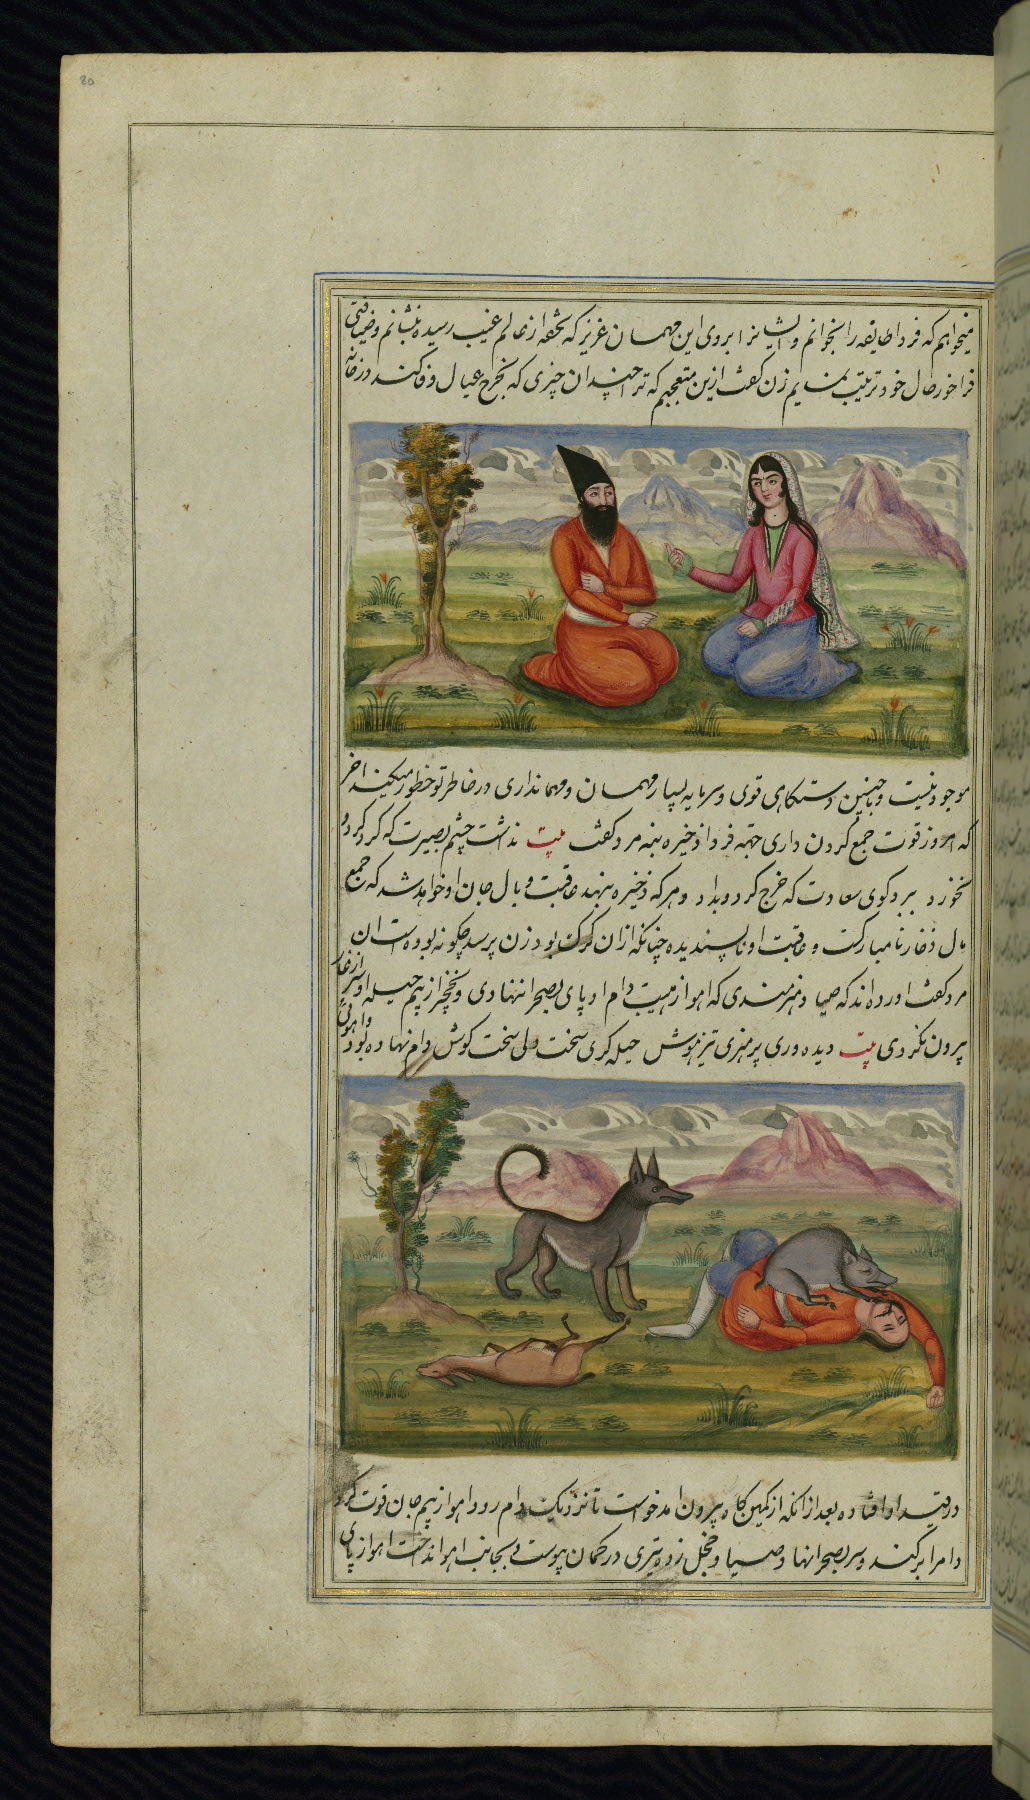 20
میخواهم که فردا طایفه را بخوانم و ایشانرا بروی این مهمان عزیز که تحفه از عالم غیب رسیده بنشانم و ضیافتی
فراخور حال خود ترتیب نمایم زن کفت ازین متعجبم که ترا چندان چیزی که بخرج عیال وفا کند در خانه
موجود نیست و باچنین دستکاهی قوی و سرمایه بسیار مهمان و مهمانداری در خاطر تو خطور میکند اخر
که امروز قوت جمع کردن داری جهته فردا ذخیره بنه مرد کفت بیت نداشت چشم بصیرت که کرد کرد و
نخورد ببرد کوی سعادت که خرج کرد و بداد و هر که ذخیره بنهد عاقبت وبال جان او خواهد شد که جمع
مال ذخار نامبارکت و عاقبت او ناپسندیده چنانکه ازان کرک بود زن پرسید چکونه بوده است ان
مرد کفت اورده اند که صیاد هنرمندی که اهو از هیبت دام او پای بصحرا ننهادی و نخچیر از بیم حیله او سر از غار
بیرون نکردی بیت دیده وری پر هنری تیز هوش حیله کری سخت دلی سخت کوش دام نهاده بود و اهوئی
در قید او افتاده بعد ازانکه از کمین کاه بیرون امد خواست تا نزدیک دام رود اهو از بیم جان قوت کرد
دامرا برکند و سر بصحرا نهاد صیاد خجل زده تیری در کمان پیوست و بجانب اهو انداخت اهو از پای